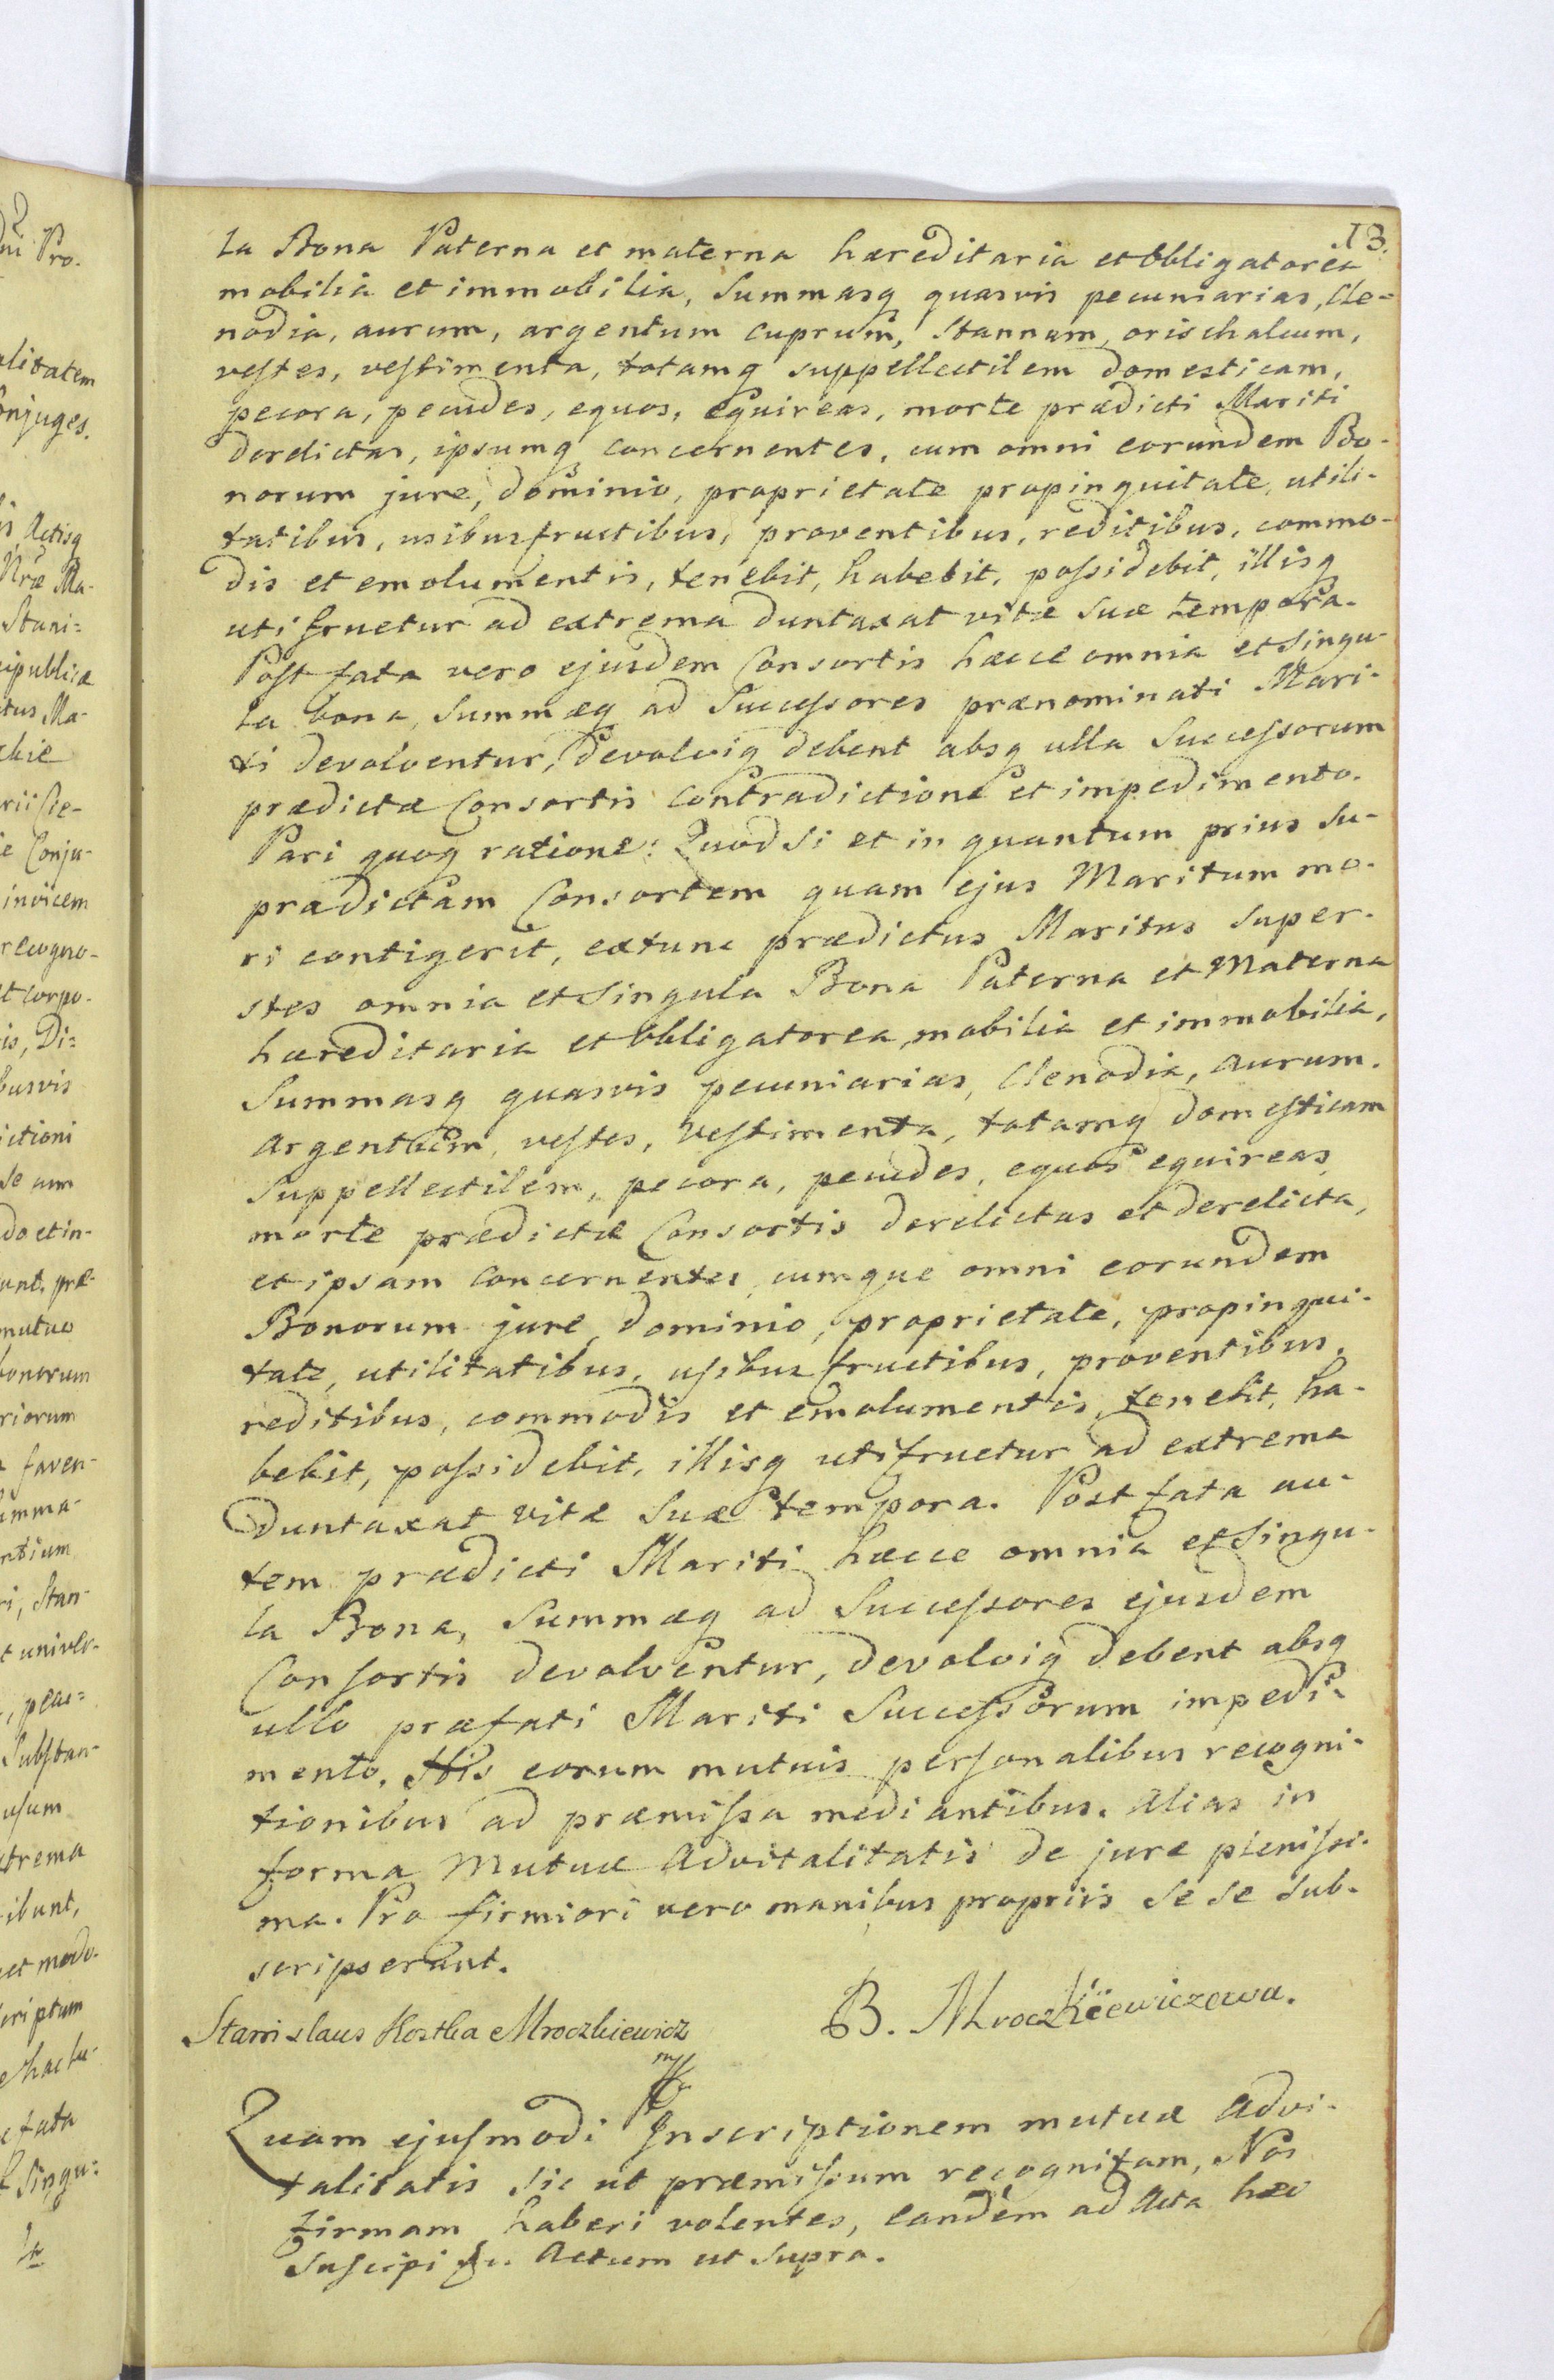 13.
la Bona Paterna et materna hæreditaria et obligatorea
mobilia et immobilia, Summasq quasvis pecuniarias, Cle-
nodia, aurum, argentum cuprum, Stannum, orischalcum,
vestes, vestimenta, totamq suppellectilem domesticam,
pecora, pecudes, equos, equireas, morte prædicti Mariti
derelictas, ipsumq concernentes, cum omni eorundem Bo-
norum jure, dominio, proprietate propinquitate, utili-
tatibus, usibusfructibus, proventibus, reditibus, commo-
dis et emolumentis, tenebit, habebit, possidebit, illisq
uti fruetur ad extrema duntaxat vitæ suæ tempora.
Post fata vero ejusdem Consortis hæcce omnia et singu-
la bona, Summæq ad Successores prænominati Mari-
ti devolventur, devolviq debent absq ulla Successorum
prædictæ Consortis contradictione et impedimento.
Pari quoq ratione: Quod Si et in quantum prius su-
pradictam Consortem quam ejus Maritum mo-
ri contigerit, extunc prædictus Maritus super-
stes omnia et singula Bona Paterna et Materna
hæreditaria et obligatorea, mobilia et immobilia,
Summasq quasvis pecuniarias, Clenodia, aurum.
argentum, vestes, vestimenta, totamq domesticam
suppellectilem, pecora, pecudes, equos equireas
morte prædictæ Consortis derelictas et derelicta,
et ipsam concernentes, cumque omni eorundem
Bonorum jure, dominio, proprietate, propinqui-
tate, utilitatibus, usibus fructibus, proventibus,
reditibus, commodis et emolumentis, tenebit, ha-
bebit, possidebit, illisq utifruetur ad extrema
duntaxat vitæ suæ tempora. Post fata au-
tem prædicti Mariti hæcce omnia et singu-
la Bona, Summæq ad Successores ejusdem
Consortis devolventur, devolviq debent absq
ullo præfati Mariti Successorum impedi-
mento. His eorum mutuis personalibus recogni-
tionibus ad præmissa mediantibus. Alias in
forma Mutuæ Advitalitatis de jure plenissi-
ma. Pro firmiori vero manibus propriis sese sub-
scripserunt.
Stanislaus Kostka Mroczkiewicz
B. Mroczkiewiczowa.
mp
Quam ejusmodi Inscriptionem mutuæ advi-
talitatis sic ut præmissum recognitam, Nos
firmam haberi volentes, eandem ad Acta hæc
suscipi Actum ut supra.